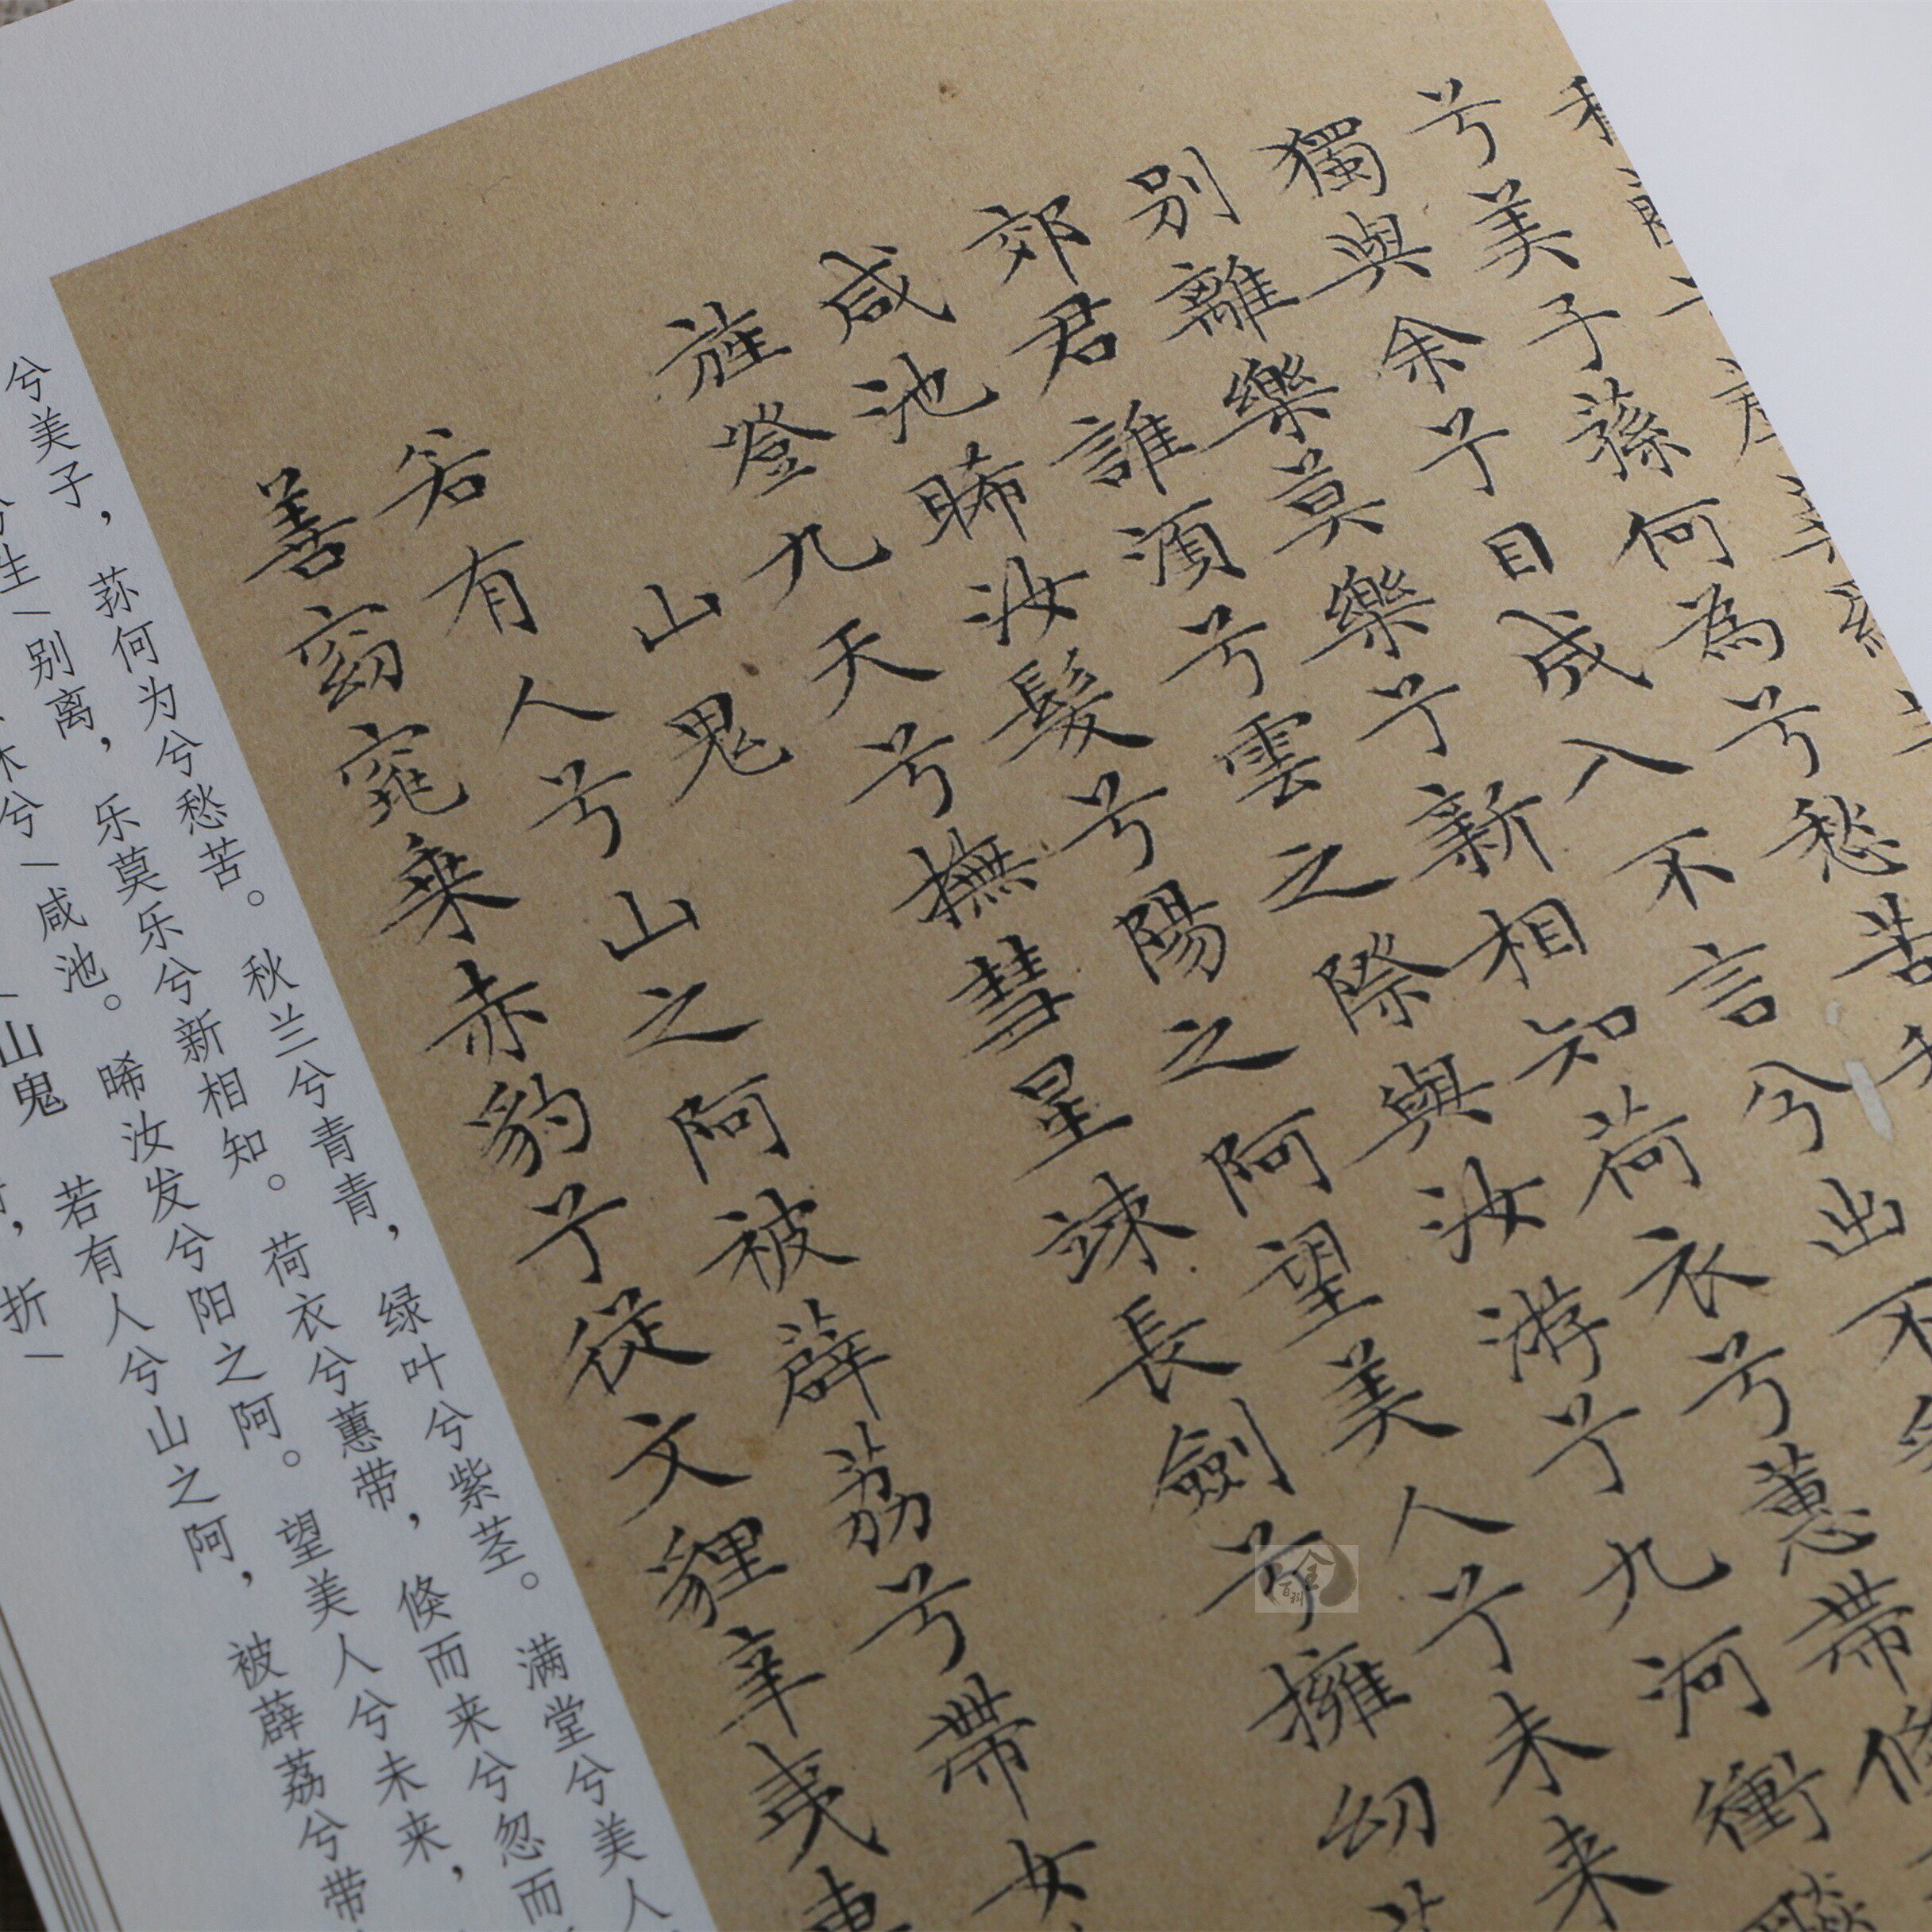 兮美子蓀何為兮愁苦
獨與余兮目成入不言兮出不
別離樂莫樂兮新相知荷衣兮蕙帶
郊君誰須兮雲之際與汝游兮九河衝
咸池晞汝髮兮陽之阿望美人兮未来
旌登九天兮撫彗星竦長劍兮擁幼
山鬼
若有人兮山之阿被薜荔兮帶女
善窈窕乗赤豹兮從文貍辛夷車
兮美子，荪何为兮愁苦。秋兰兮青青，绿叶兮紫茎。满堂兮美人
生|别离，乐莫乐兮新相知。荷衣兮蕙带，倏而来兮忽而
沐兮|咸池。晞汝发兮阳之阿。望美人兮未来，
|山鬼 若有人兮山之阿，被薜荔兮带
，折|
全百科